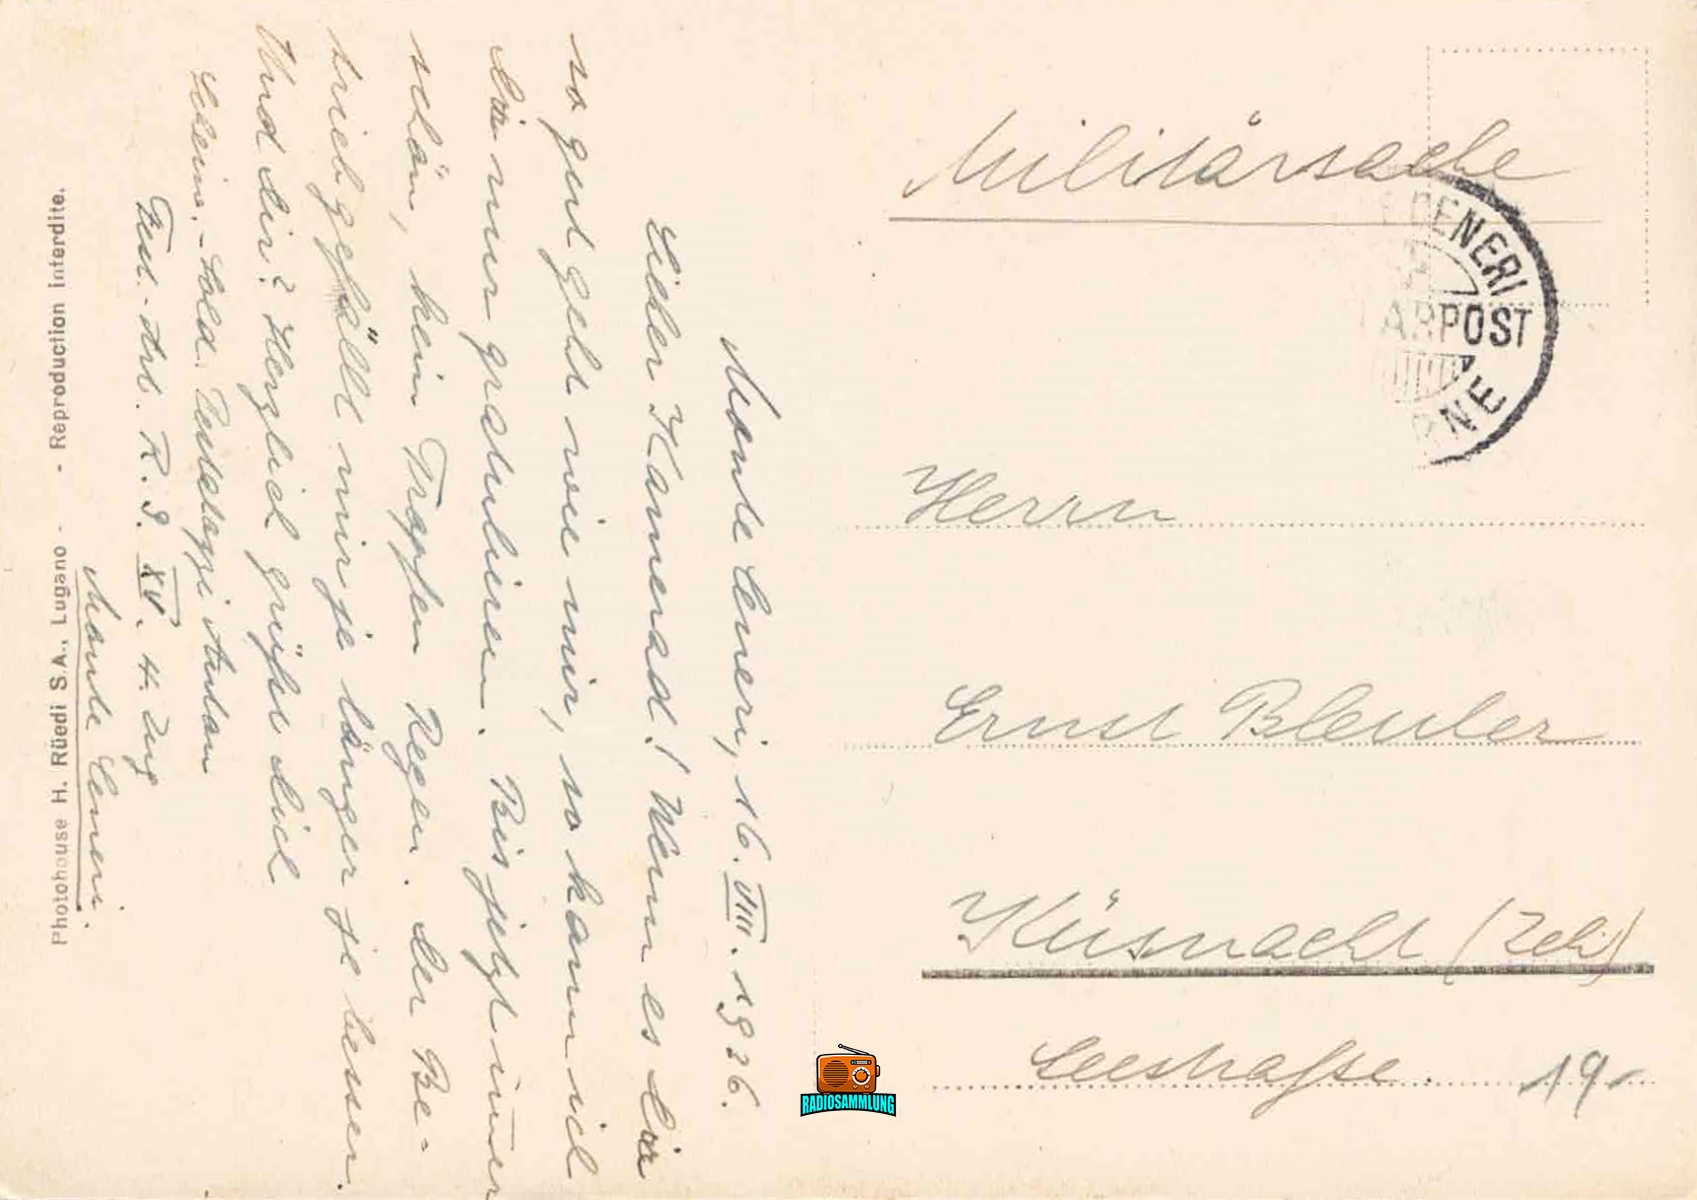 Militärsache
CENERI
ARPOST
NE
Herrn
Ernst Bleuler
Küsnacht (Zch)
Seestraße. 19.-
Monte Ceneri, 16. VIII. 1926.
Lieber Kamerad! Wenn es Dir
so gut geht wie mir, so kann ich
Dir nur gratulieren. Bis jetzt immer
schön, kein Tropfen Regen. Der Be-
trieb gefällt mir je länger je besser.
Und dir? Herzlich grüßt dich
Anton
R. S. XV. 4. Zug
Monte Ceneri.
Photohouse H. Rüedi S.A., Lugano - - Reproduction interdite.
RADIOSAMMLUNG